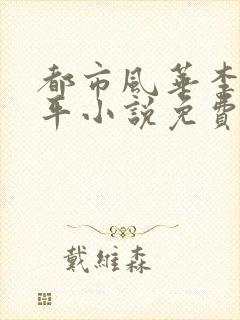 都市風華李
平小說免費
戴維森